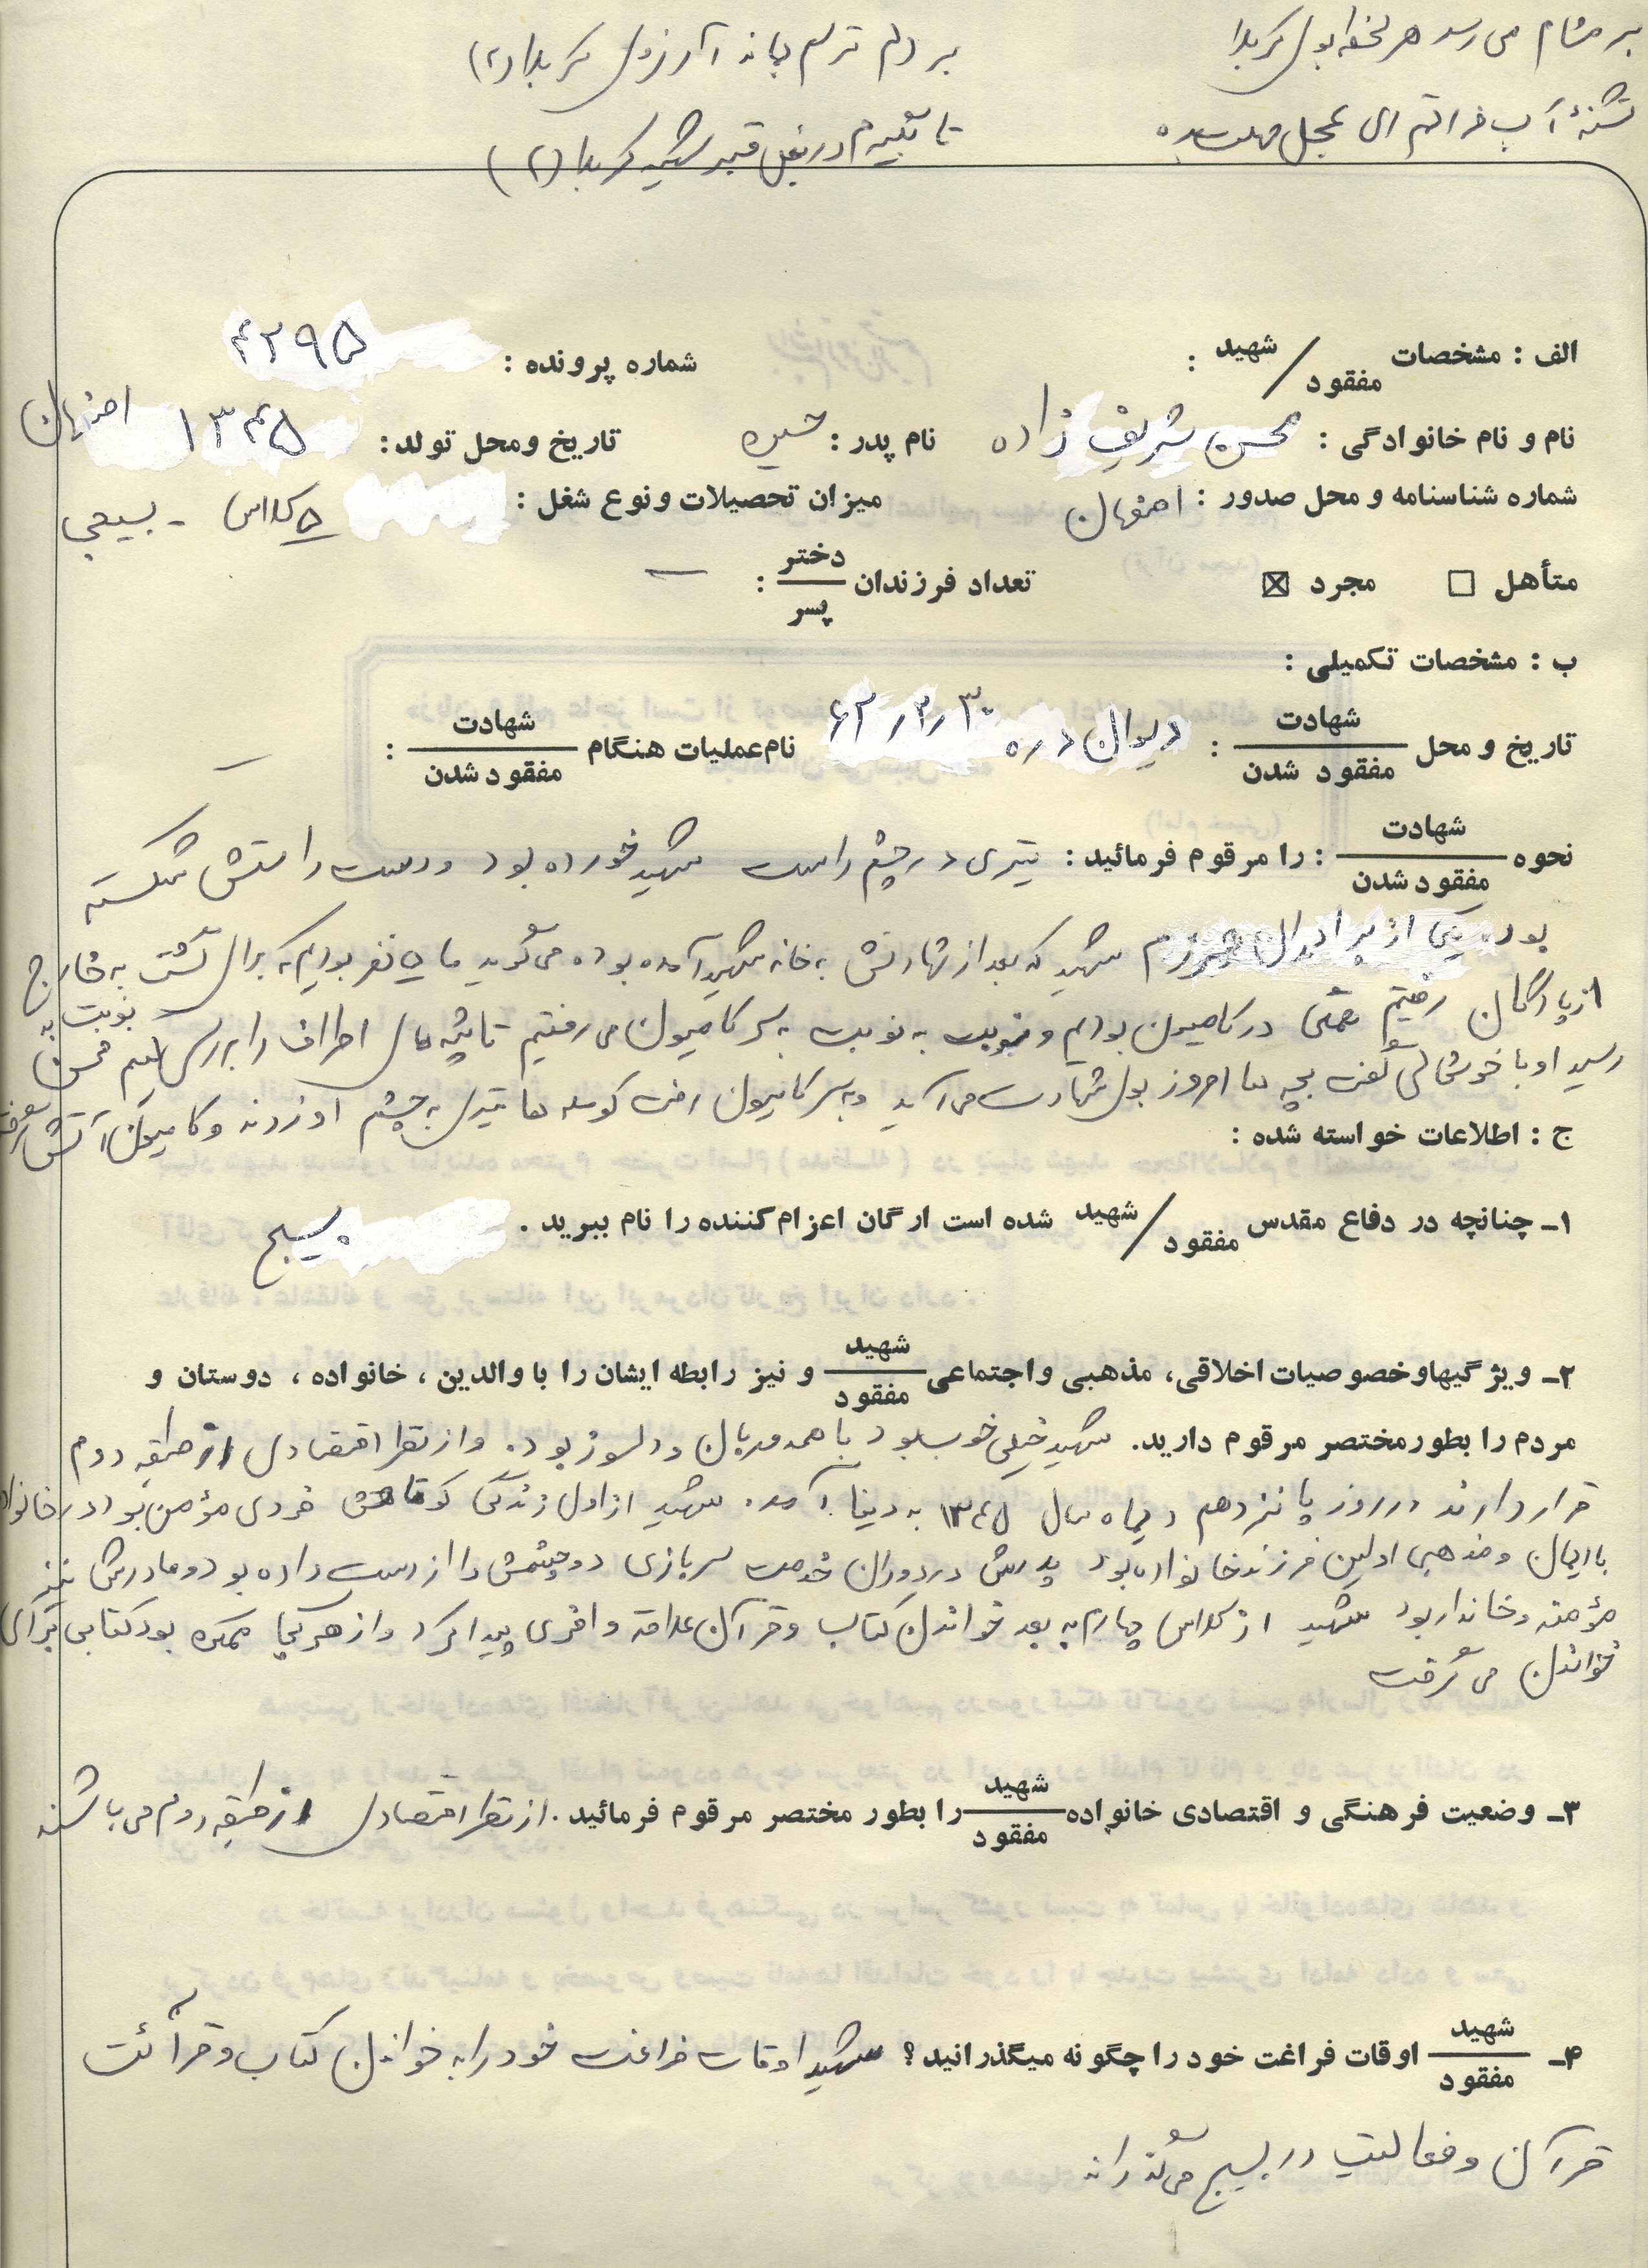 بر مشام می رسد هر لحظه بوی کربلا
بر دلم ترسم بماند آرزوی کربلا (۲)
تشنهٔ آب فراتم ای عجل مهلت بده
تا بگیرم در بغل قبر شهید کربلا (۲)
الف : مشخصات شهید / مفقود :
شماره پرونده : ۴۲۹۵
نام و نام خانوادگی : محسن شریف زاده
نام پدر :
تاریخ ومحل تولد : ۱۳۴۵ اصفهان
شماره شناسنامه و محل صدور : اصفهان
میزان تحصیلات ونوع شغل : ۵ کلاس - بسیجی
متأهل ☐ مجرد ☒
تعداد فرزندان دختر / پسر : —
ب : مشخصات تکمیلی :
تاریخ و محل شهادت / مفقود شدن : دیوان دره ۶۲/۲/۳۰
نام عملیات هنگام شهادت / مفقود شدن : —
نحوه شهادت / مفقود شدن : را مرقوم فرمائید : تیری در چشم راست شهید خورده بود ودست راستش شکسته
بود یکی از برادران شهید که بعد از شهادتش به خانه شهید آمده بوده می گوید ما ۵ نفر بودیم که برای گشت به خارج
از پادگان رفتیم همگی در کامیون بودیم و نوبت به نوبت به سر کامیون می رفتیم تا تپه های اطراف را بررسی کنیم نوبت به محسن
رسید او با خوشحالی گفت بچه ها امروز بوی شهادت می آید و به سر کامیون رفت کومله ها تیری به چشم او زدند و کامیون آتش گرفت
ج : اطلاعات خواسته شده :
۱ـ چنانچه در دفاع مقدس شهید / مفقود شده است ارگان اعزام کننده را نام ببرید . بسیج
۲ـ ویژگیهاوخصوصیات اخلاقی، مذهبی واجتماعی شهید / مفقود و نیز رابطه ایشان را با والدین ، خانواده ، دوستان و
مردم را بطورمختصر مرقوم دارید. شهید خیلی خوب بود با همه مهربان و دلسوز بود. و از نظر اقتصادی از طبقه دوم
قرار دارند در روز پانزدهم دیماه سال ۱۳۴۵ به دنیا آمد. شهید از اول زندگی کوتاهش فردی مؤمن بود در خانواده
با ایمان و مذهبی اولین فرزند خانواده بود پدرش در دوران خدمت سربازی دو چشمش را از دست داده بود و مادرش نیز
مؤمنه و خانه دار بود شهید از کلاس چهارم به بعد خواندن کتاب و قرآن علاقه وافری پیدا کرد و از هر کجا ممکن بود کتابی برای
خواندن می گرفت
۳ـ وضعیت فرهنگی و اقتصادی خانواده شهید / مفقود را بطور مختصر مرقوم فرمائید . از نظر اقتصادی از طبقه دوم می باشند
۴ـ شهید / مفقود اوقات فراغت خود را چگونه میگذرانید ؟ شهید اوقات فراغت خود را به خواندن کتاب و قرائت
قرآن و فعالیت در بسیج می گذراند